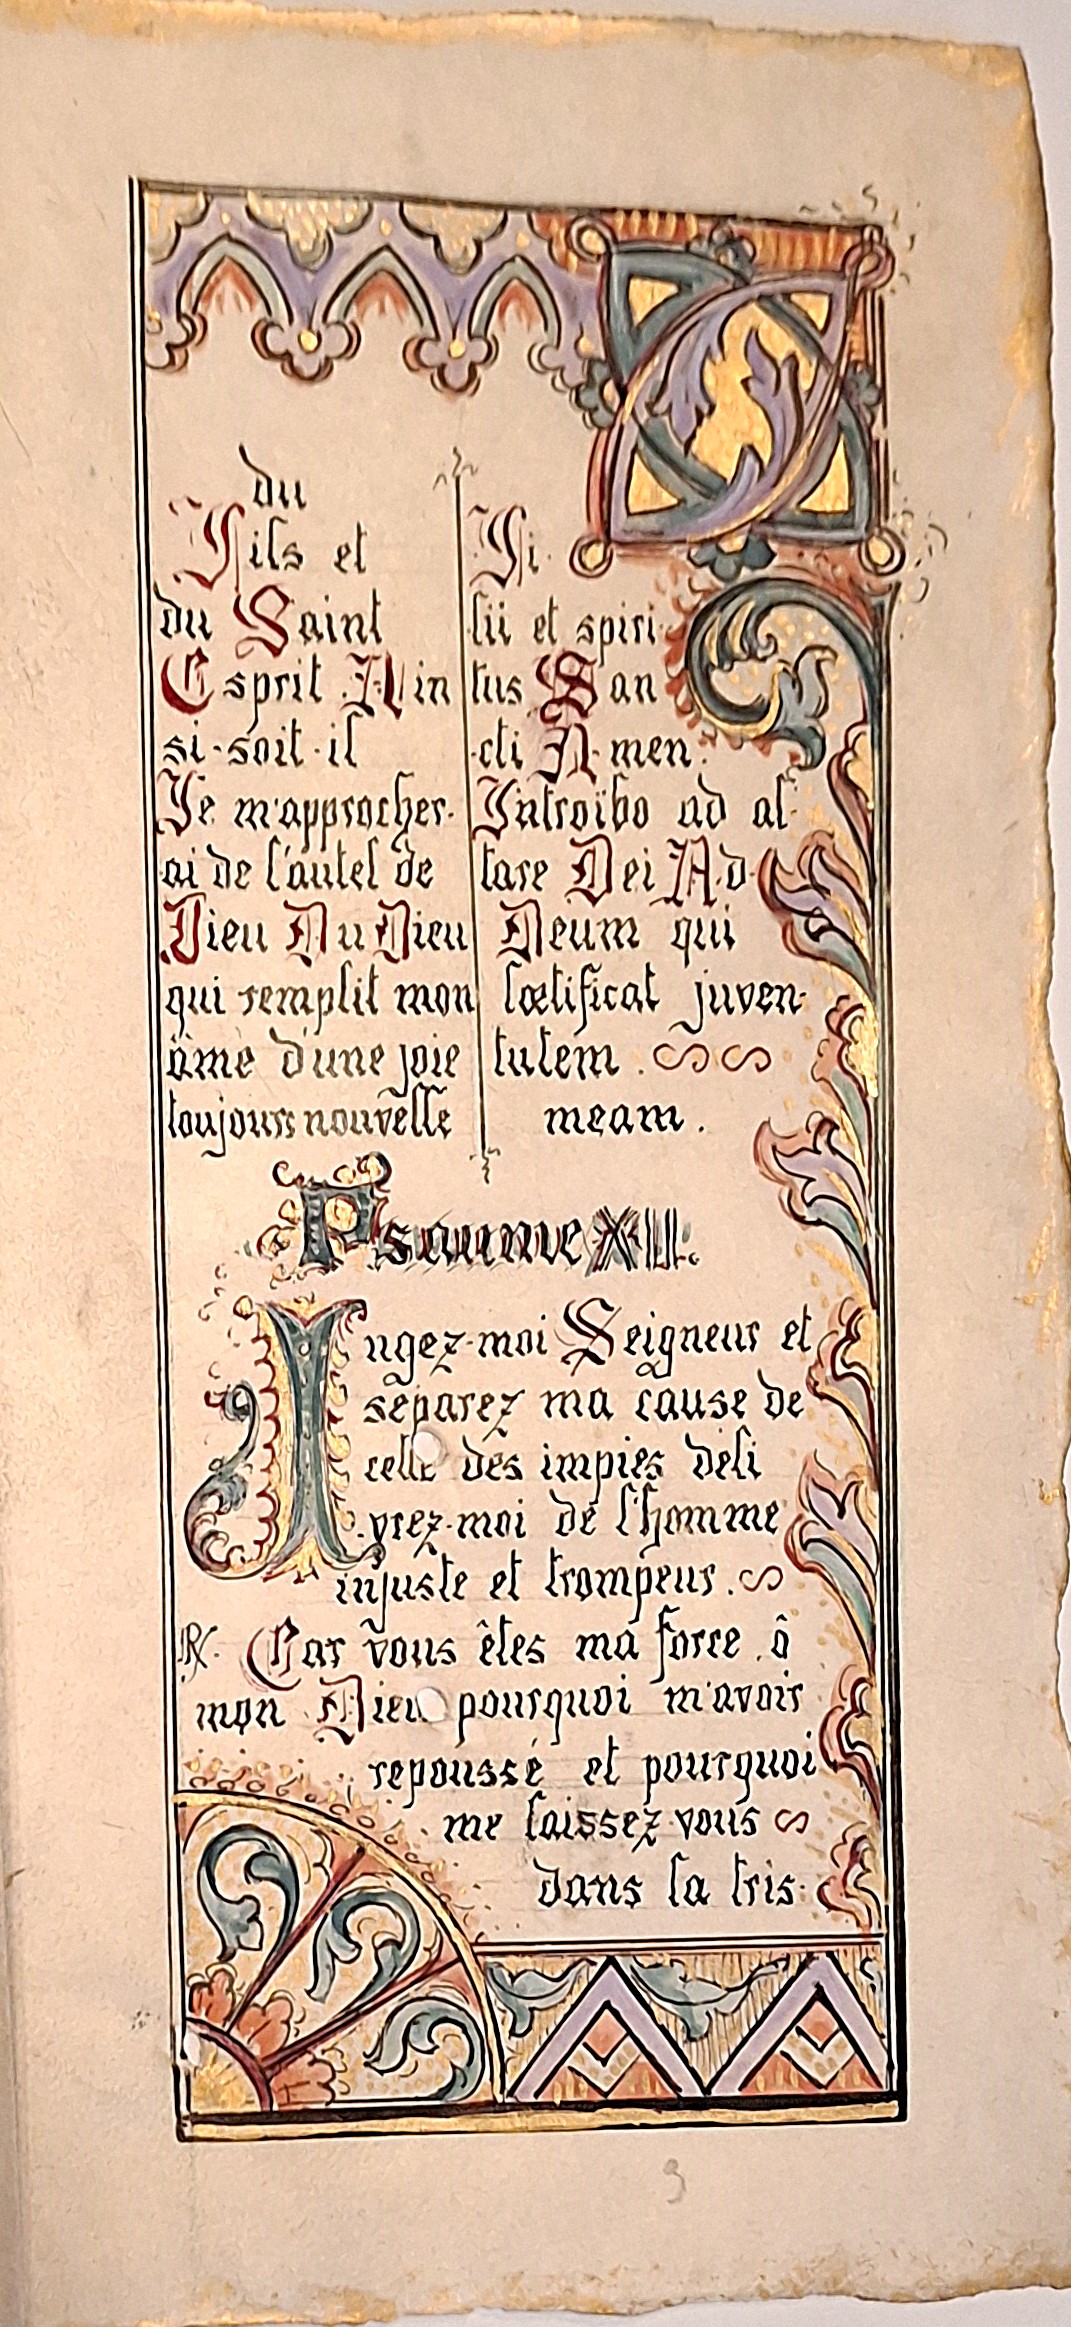 du
Fils et
du Saint
Esprit Ain
si-soit-il
Je m'approcher-
ai de l'autel de
Dieu Du Dieu
qui remplit mon
âme d'une joie
toujours nouvelle
Fi-
lii et spiri-
tus San
-cti A-men.
Introïbo ad al-
tare Dei A-d-
Deum qui
lœtificat juven-
tutem.
meam.
Psaume XLII.
Jugez-moi Seigneur et
séparez ma cause de
celle des impies déli
-vrez-moi de l'homme
injuste et trompeur.
R. Car vous êtes ma force, ô
mon Dieu pourquoi m'avoir
repoussé et pourquoi
me laissez-vous
dans la tris-
9